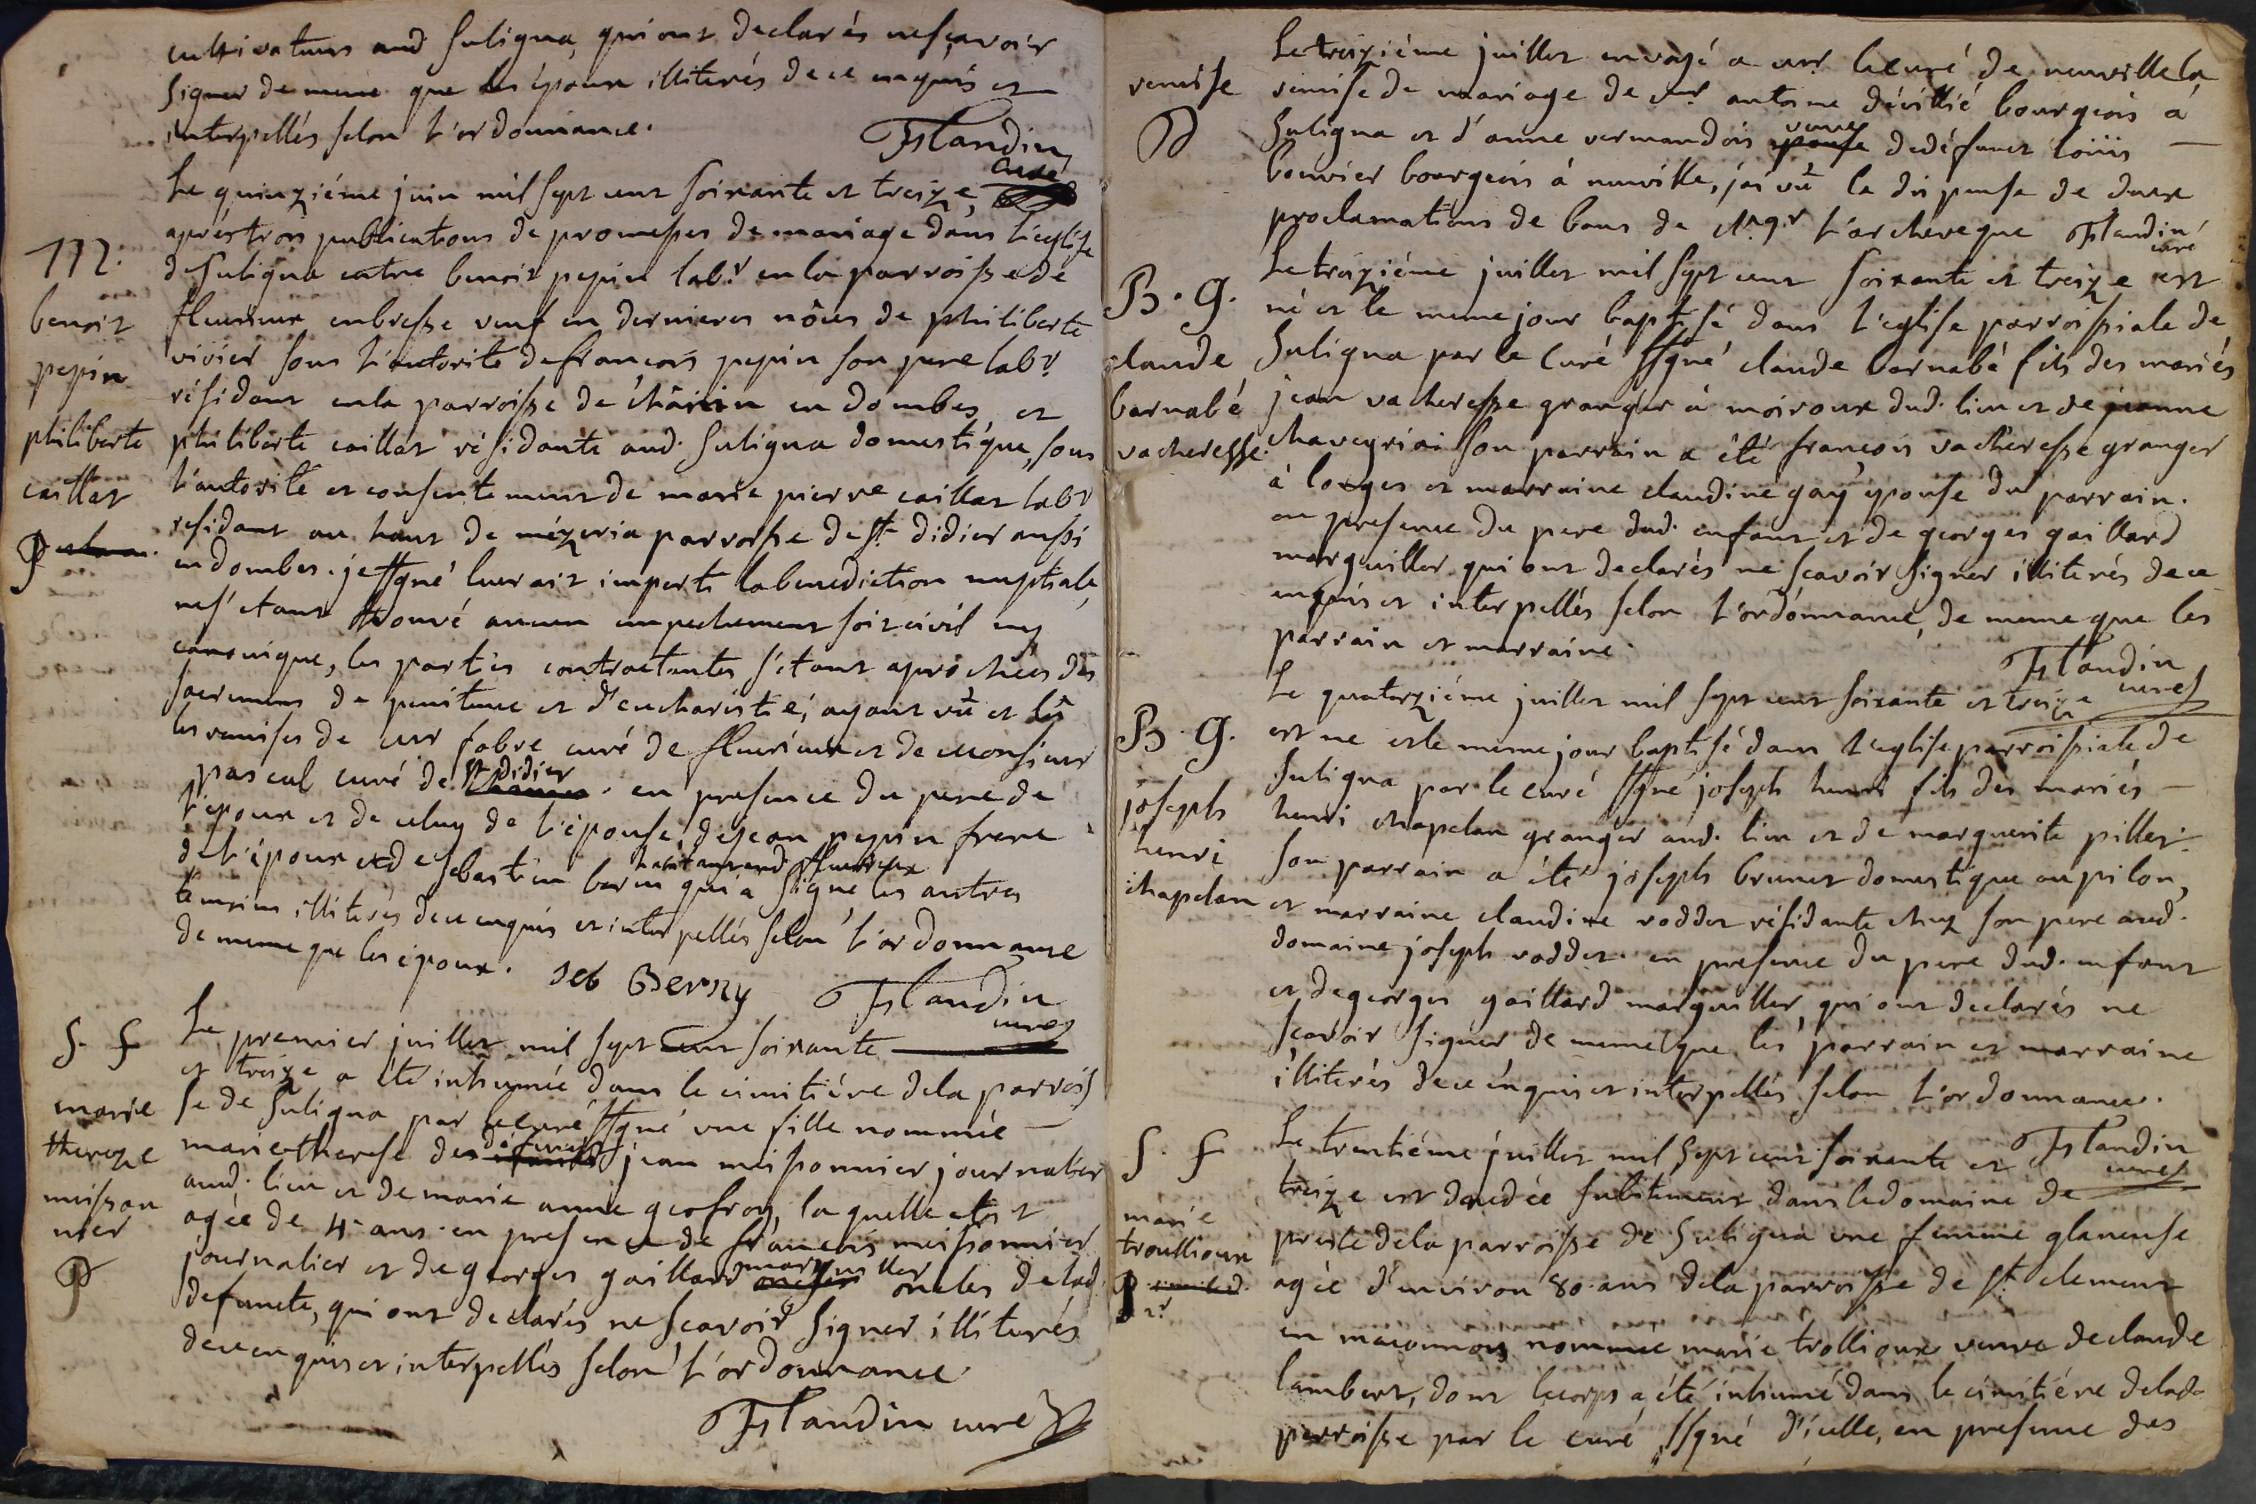 cultivateurs aud Suligna, qui ont declarés ne sçavoir
signer de meme que les époux illiterés de ce enquis et
interpellés selon l'ordonnance.
Flandin
curé
Le quinziéme juin mil sept cent soixante et treize,
aprés trois publications de promesses de mariage dans l'eglise
de Suligna entre benoit pepin labr en la parroisse de
fleurieux en bresse veuf en dernieres nôces de philiberte
vivier sous l'autorité de françois pepin son pere labr
résidant en la parroisse de en dombes et
philiberte caillat résidante aud. Suligna domestique, sous
l'autorité et consentement de marie pierre caillat labr
résidant au haut de mézeria parroisse de st didier aussi
en dombes. je ssigné leur ait imparti la benediction nuptiale,
ne s'étant trouvé aucun empechement soit civil ny
canonique, les parties contractantes s'étant aprochées des
sacremens de penitence et d'eucharistié, ayant vû et lû
les remises de mr fabre curé de fleurieux et de monsieur
pascal curé de st didier. en presence du pere de
l'epoux et de celuy de l'épouse, de jean pepin frere
de l'époux et de sebastien bernin habitant aud fleurieux qui a signé les autres
témoins illiterés de ce enquis et interpellés selon l'ordonnance
de meme que les époux. Seb Berny Flandin
curé
M.
benoit
pepin
philiberte
caillat
Le premier juillet mil sept cent soixante
et treize a été inhumée dans le cimitiére de la parrois
se de Suligna par le curé ssigné une fille nommée
marie therese de defunct jean meissonnier journalier
aud. lieu et de marie anne geofroy, la quelle etoit
agée de 4 ans. en presence de francois meissonnier
journalier et de georges gaillard marguiller oncles de lad.
defuncte, qui ont declarés ne scavoir signer illiterés
de ce enquis et interpellés selon l'ordonnance.
Flandin curé
S. f
marie
thereze
meisson
nier
P
Le treiziéme juillet envoyé a mr le curé de neuville la
remise de mariage de sr antoine dévillié bourgeois á
Suligna et d'anne vermandois veuve de défunct loüis
bouvier bourgeois á neuville, j'ai vû la dispense de deux
proclamations de bans de Mgr l'archeveque Flandin
curé
remise
Le treiziéme juillet mil sept cent soixante et treize est
né et le meme jour baptisé dans l'eglise parroissiale de
Suligna par le curé ssigné claude barnabé fils des mariés
jean vacheresse granger á moiroux dud. lieu et de jeanne
chaveyriai son parrain a été françois vacheresse granger
á loeges et marraine claudine gay epouse du parrain.
en presence du pere dud. enfant et de georges gaillard
marguiller qui ont declarés ne scavoir signer illiterés de ce
enquis et interpellés selon l'ordonnance, de meme que les
parrain et marraine.
Flandin
curé
B. G.
claude
barnabé
vacheresse.
Le quatorziéme juillet mil sept cent soixante et treize
est ne et le meme jour baptisé dans l'eglise parroissiale de
Suligna par le curé ssigné joseph henri fils des mariés
henri chapelan granger aud. lieu et de marguerite pillet.
son parrain a été joseph brunet domestique au pilon,
et marraine claudine voddot résidante chez son pere aud.
domaine joseph voddot. en presence du pere dud. enfant
et de georges gaillard marguiller, qui ont declarés ne
scavoir signer de meme que les parrain et marraine
illiterés de ce enquis et interpellés selon l'ordonnance.
Flandin
curé
B. G.
joseph
henri
chapelan
Le trentiéme juillet mil sept cent soixante et
treize est decedée subitement dans le domaine de
preste de la parroisse de Suligna une femme glaneuse
agée d'environ 80 ans de la parroisse de st clement
en maconnois nommée marie trollioux veuve de claude
lambert, dont le corps a été inhumé dans le cimitiére de lad.
parroisse par le curé ssigné d'icelle, en presence des
S. f
marie
troullioux